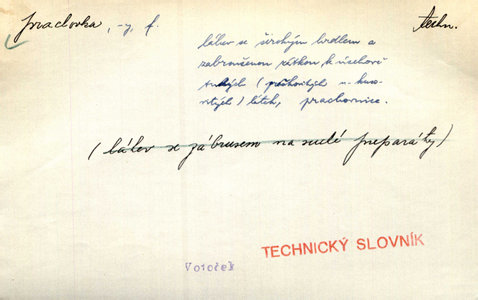 prachovka, -y, f. techn.
láhev se širokým hrdlem a
zabroušenou zátkou k úschově
tuhých (práškovitých n. kus-
ovitých) látek, prachovnice.
(láhev se zábrusem na suché preparáty)
TECHNICKÝ SLOVNÍK
Votoček